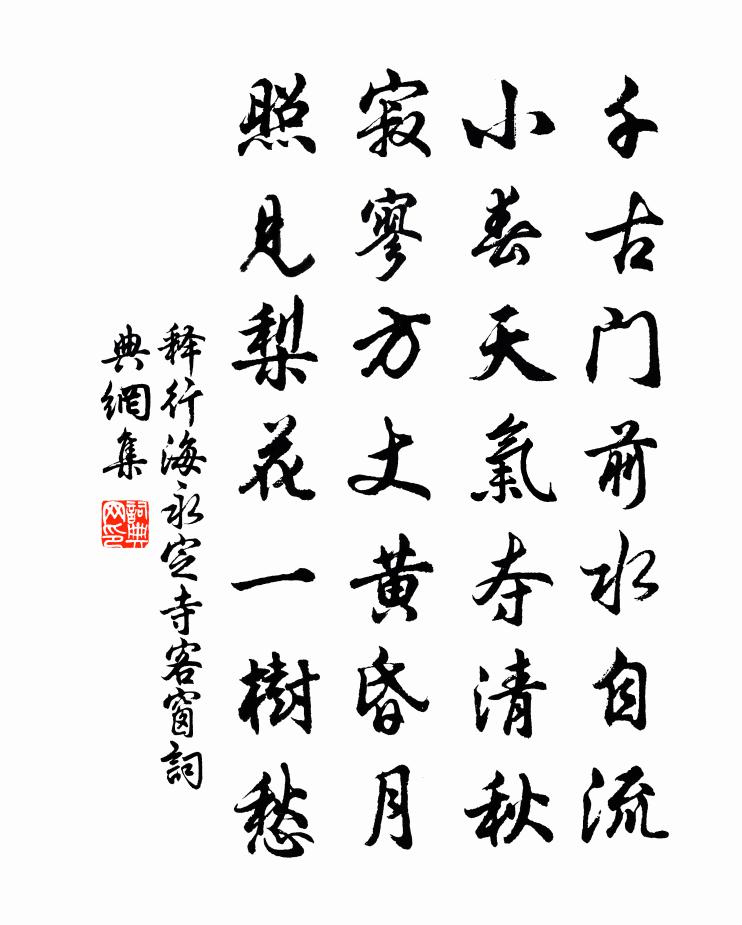 千古門前水自流
小春天氣夺清秋
寂寥方丈黃昏月
照見梨花一樹愁
释行海永定寺客窗詞
典網集
詞典
网印